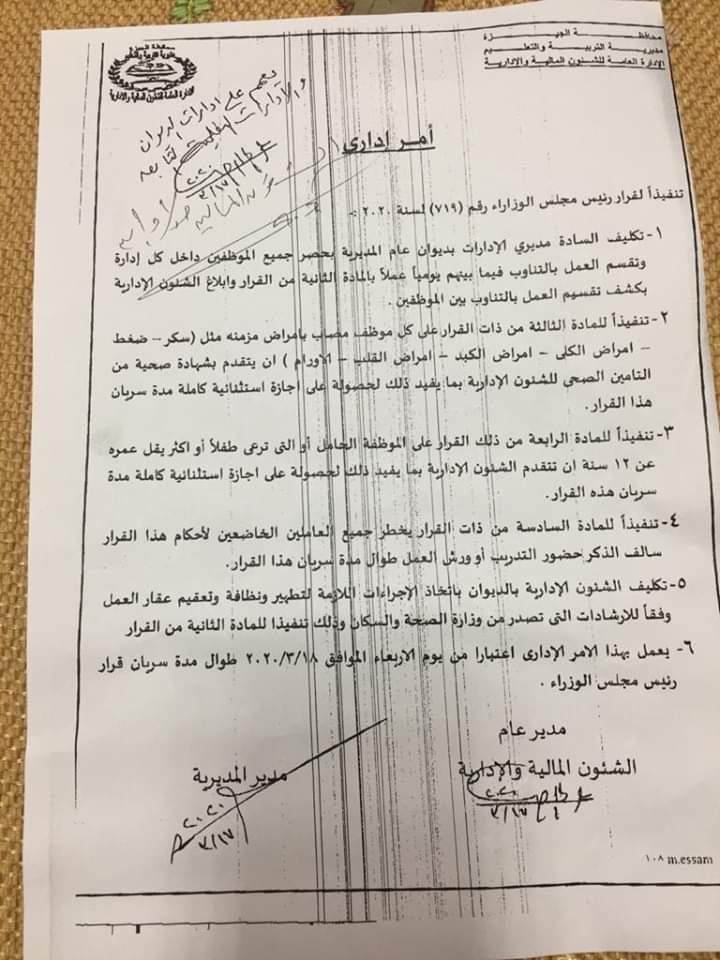 محافظة الجيزة
مديرية التربية والتعليم
الإدارة العامة للشئون المالية والإدارية
محافظة الجيزة
مديرية التربية والتعليم
الإدارة العامة للشئون المالية والإدارية
يعمم على ادارات الديوان
والإدارات التعليمية التابعة
٢٠٢٠
٣/١٧
أمر إدارى
تنفيذاً لقرار رئيس مجلس الوزاراء رقم (٧١٩) لسنة ٢٠٢٠ :-
١- تكليف السادة مديري الإدارات بديوان عام المديرية بحصر جميع الموظفين داخل كل إدارة
وتقسم العمل بالتناوب فيما بينهم يومياً عملاً بالمادة الثانية من القرار وابلاغ الشئون الإدارية
بكشف تقسيم العمل بالتناوب بين الموظفين .
٢- تنفيذاً للمادة الثالثة من ذات القرار على كل موظف مصاب بامراض مزمنه مثل (سكر – ضغط
– امراض الكلى – امراض الكبد – امراض القلب – الاورام ) ان يتقدم بشهادة صحية من
التامين الصحى للشئون الإدارية بما يفيد ذلك لحصولة على اجازة استثنائية كاملة مدة سريان
هذا القرار .
٣- تنفيذاً للمادة الرابعة من ذلك القرار على الموظفة الحامل أو التى ترعى طفلاً أو اكثر يقل عمره
عن ١٢ سنة ان تتقدم الشئون الإدارية بما يفيد ذلك لحصولة على اجازة استثنائية كاملة مدة
سريان هذه القرار.
٤- تنفيذاً للمادة السادسة من ذات القرار يخطر جميع العاملين الخاضعين لأحكام هذا القرار
سالف الذكر حضور التدريب أو ورش العمل طوال مدة سريان هذا القرار.
٥- تكليف الشئون الإدارية بالديوان باتخاذ الإجراءات اللازمة لتطهير ونظافة وتعقيم عقار العمل
وفقاً للارشادات التى تصدر من وزارة الصحة والسكان وذلك تنفيذا للمادة الثانية من القرار
٦- يعمل بهذا الامر الإدارى اعتبارا من يوم الاربعاء الموافق ٢٠٢٠/٣/١٨ طوال مدة سريان قرار
رئيس مجلس الوزراء .
مدير عام
الشئون المالية والإدارية
٢٠٢٠
٣/١٧
مدير المديرية
٢٠٢٠
٣/١٧
١٠٨ m.essam